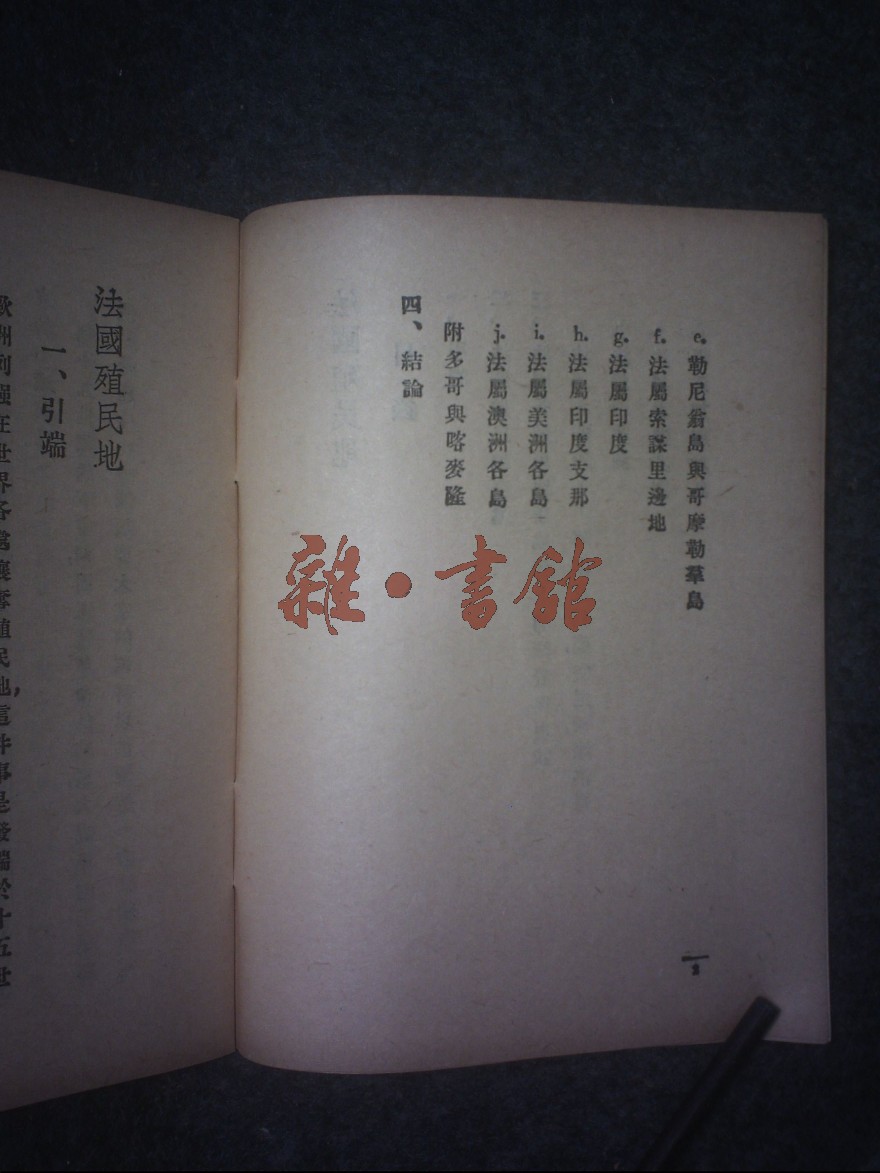 e. 勒尼翁島與哥摩勒羣島
f. 法屬索謀里邊地
g. 法屬印度
h. 法屬印度支那
i. 法屬美洲各島
j. 法屬澳洲各島
附多哥與喀麥隆
四、結論
2
雜·書館
法國殖民地
一、引端
歐洲列强在世界各處攘奪殖民地,這件事是發端於十五世